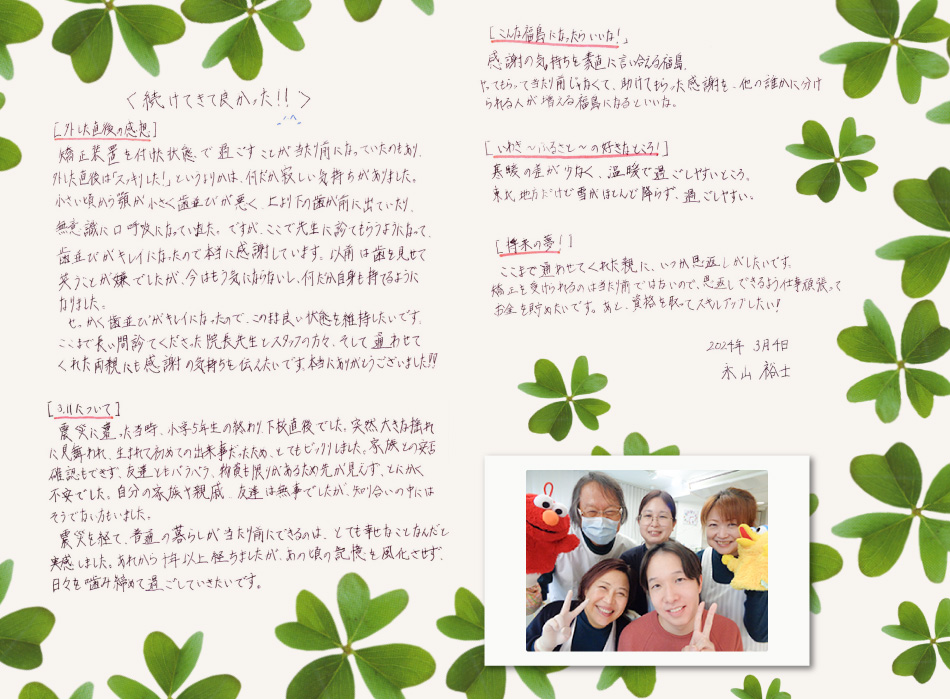 〈続けてきて良かった!!〉
[外した直後の感想]
矯正装置を付けた状態で過ごすことが当たり前になっていたのもあり、
外した直後は「スッキリした!」というよりかは、何だか寂しい気持ちがありました。
小さい頃から顎が小さく歯並びが悪く、上より下の歯が前に出ていたり、
無意識に口呼吸になっていました。ですが、ここで先生に診てもらうようになって、
歯並びがキレイになったので本当に感謝しています。以前は歯を見せて
笑うことが嫌でしたが、今はもう気にならないし、何だか自身も持てるように
なりました。
せっかく歯並びがキレイになったので、このまま良い状態を維持したいです。
ここまで長い間診てくださった院長先生とスタッフの方々、そして通わせて
くれた両親にも感謝の気持ちを伝えたいです。本当にありがとうございました!!
[3.11について]
震災に遭った当時、小学5年生の終わり、下校直後でした。突然大きな揺れ
に見舞われ、生まれて初めての出来事だったため、とてもビックリしました。家族との安否
確認もできず、友達ともバラバラ、物資も限りがあるため先が見えず、とにかく
不安でした。自分の家族や親戚、友達は無事でしたが、知り合いの中には
そうでない方もいました。
震災を経て、普通の暮らしが当たり前にできるのは、とても幸せなことなんだと
実感しました。あれから十年以上経ちましたが、あの頃の記憶を風化させず、
日々を噛み締めて過ごしていきたいです。
[こんな福島になったらいいな!]
感謝の気持ちを素直に言い合える福島。
やってもらって当たり前じゃなくて、助けてもらった感謝を、他の誰かに分け
られる人が増える福島になるといいな。
[いわき〜ふるさと〜の好きなところ!]
寒暖の差が少なく、温暖で過ごしやすいところ。
東北地方だけど雪がほとんど降らず、過ごしやすい。
[将来の夢!]
ここまで通わせてくれた親に、いつか恩返しがしたいです。
矯正を受けられるのは当たり前ではないので、恩返しできるよう仕事頑張って
お金を貯めたいです。あと、資格を取ってスキルアップしたい!
2024年 3月4日
木山 裕士